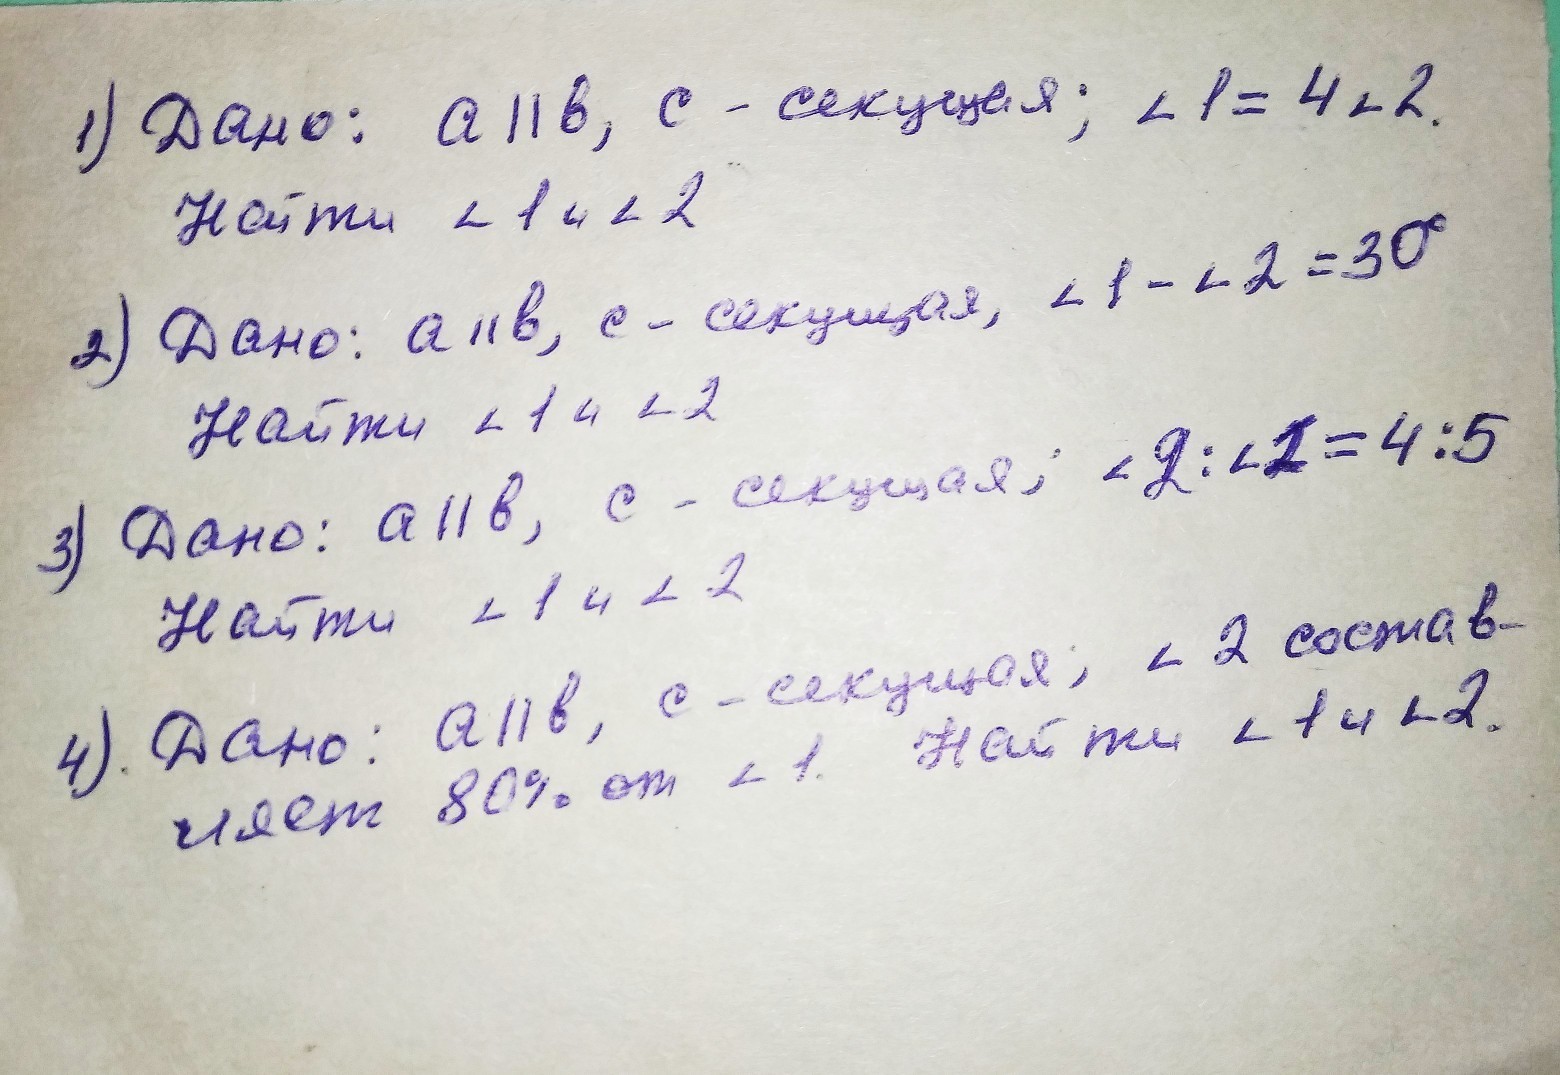 1) Дано: а||в, с - секущая; ∠1 = 4∠2.
Найти ∠1 и ∠2
2) Дано: а||в, с - секущая, ∠1 - ∠2 = 30°
Найти ∠1 и ∠2
3) Дано: а||в, с - секущая; ∠2:∠1 = 4:5
Найти ∠1 и ∠2
4). Дано: а||в, с - секущая; ∠2 состав-
ляет 80% от ∠1. Найти ∠1 и ∠2.